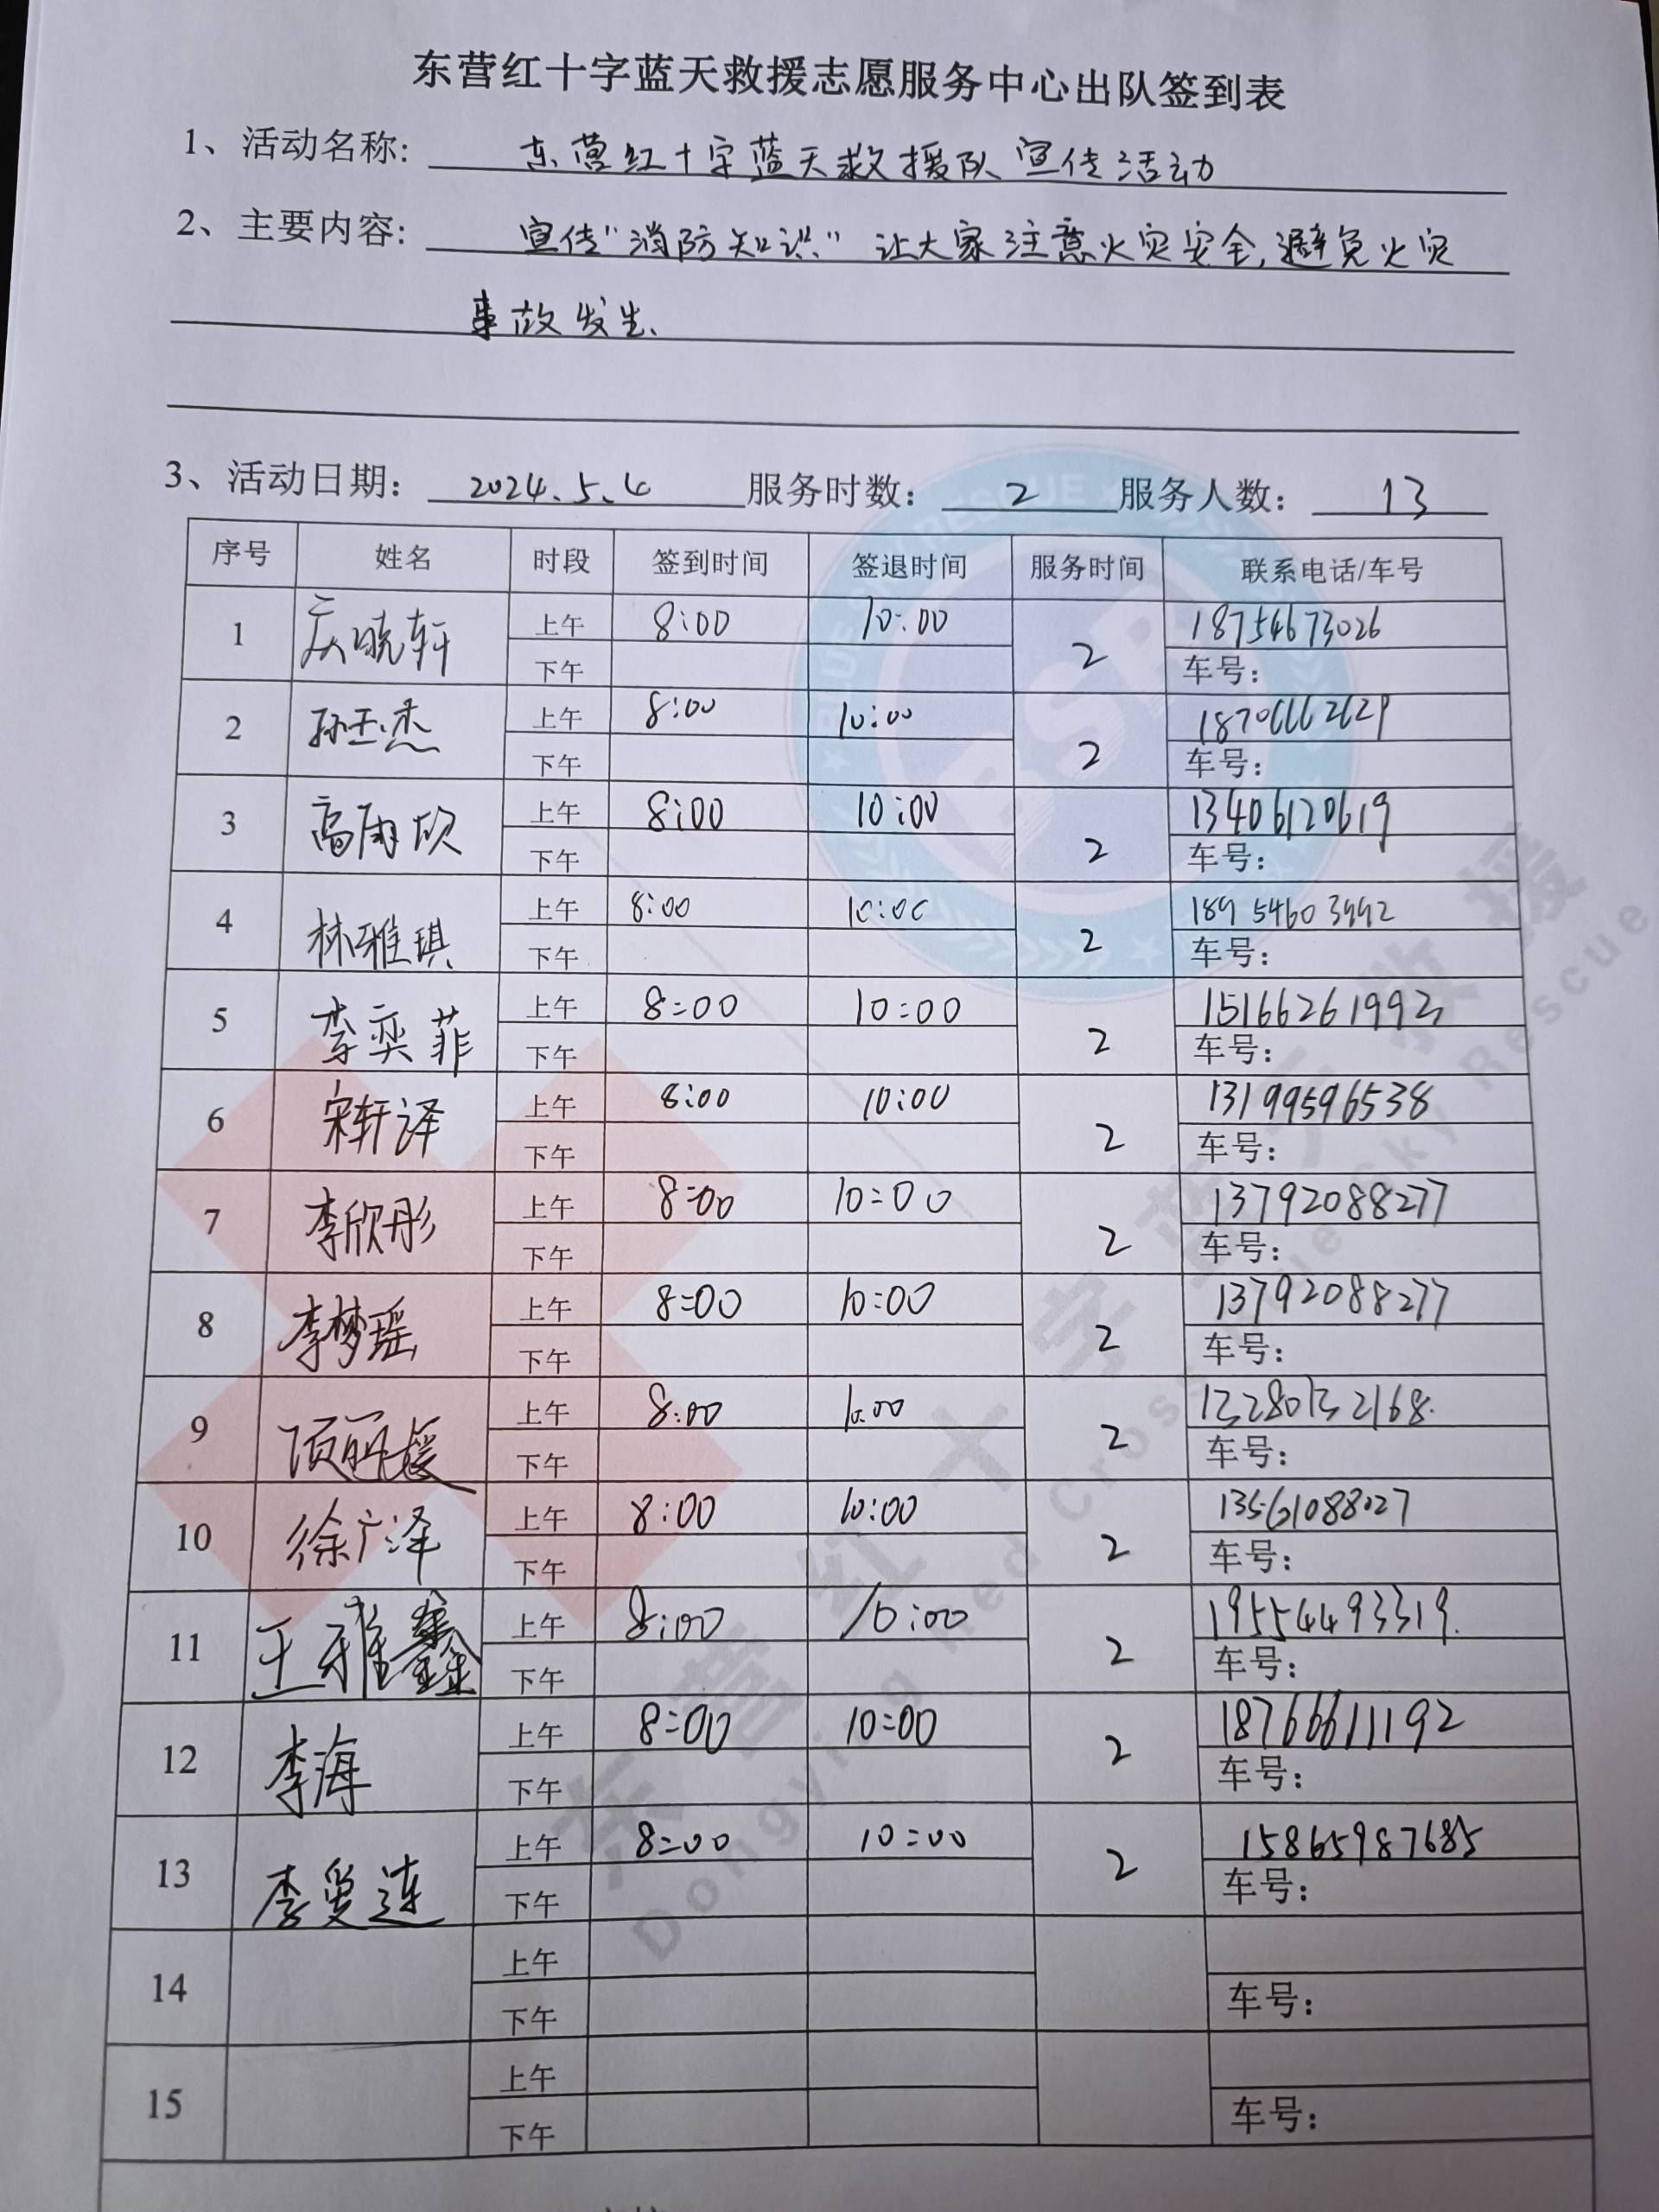 东营红十字蓝天救援志愿服务中心出队签到表
1、活动名称: 东营红十字蓝天救援队宣传活动
2、主要内容: 宣传"消防知识"让大家注意火灾安全,避免火灾
事故发生、
3、活动日期: 2024.5.4 服务时数: 2 服务人数: 13
序号 姓名 时段 签到时间 签退时间 服务时间 联系电话/车号
1 晓轩 上午 8:00 10:00 2 18754673026
下午 车号:
2 孙玉杰 上午 8:00 10:00 2 18706662629
下午 车号:
3 高雨欣 上午 8:00 10:00 2 13406120619
下午 车号:
4 林雅琪 上午 8:00 10:00 2 189 5460 3992
下午 车号:
5 李奕菲 上午 8:00 10:00 2 15166261992
下午 车号:
6 宋轩译 上午 8:00 10:00 2 13199596538
下午 车号:
7 李欣彤 上午 8:00 10:00 2 13792088277
下午 车号:
8 李梦瑶 上午 8:00 10:00 2 13792088277
下午 车号:
9 上午 8:00 10:00 2 13280132168
下午 车号:
10 徐广泽 上午 8:00 10:00 2 13561088027
下午 车号:
11 王雅鑫 上午 8:00 10:00 2 19554493319
下午 车号:
12 李海 上午 8:00 10:00 2 18766611192
下午 车号:
13 李爱莲 上午 8:00 10:00 2 15865987685
下午 车号:
14 上午
下午 车号:
15 上午
下午 车号:
东营红十字蓝天救援
Dongying Red Cross Blue Sky Rescue
BSR